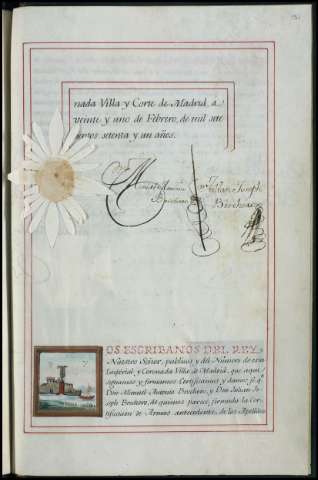 nada Villa y Corte de Madrid, a
veinte y uno de Febrero, de mil sete
cientos setenta y un años.
Julian Joseph
Brochero
OS ESCRIBANOS DEL REY
Nuestro Señor, publicos y del Numero de esta
Imperial y Coronada Villa de Madrid, que aqui
signamos y firmamos Certificamos y damos feê q.
Don Manuel Antonio Brochero, y Don Julian Jo-
seph Brochero, de quienes parece firmada la Cer-
tificacion de Armas antecedente, de los Apellidos